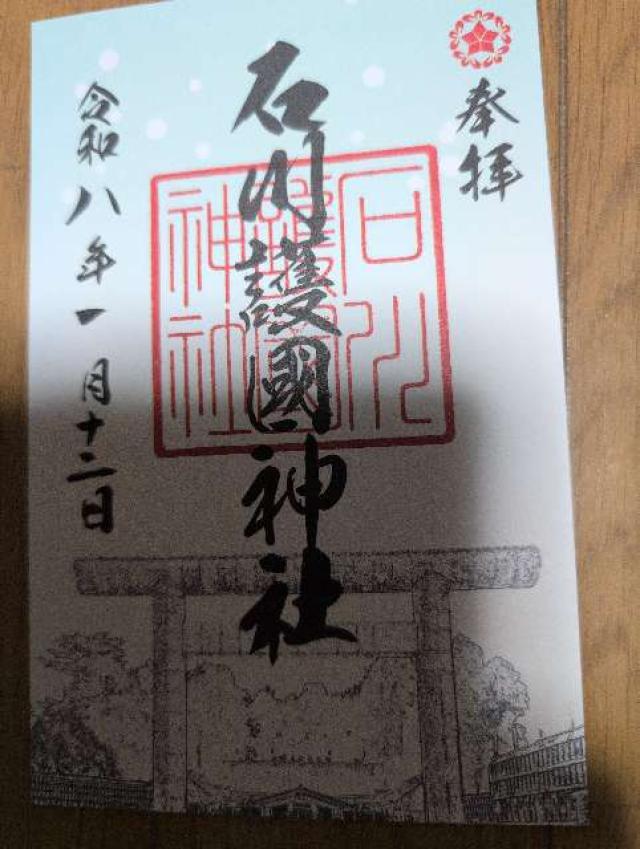 奉拝
石川護國神社
石川
護國
神社
令和八年一月十二日